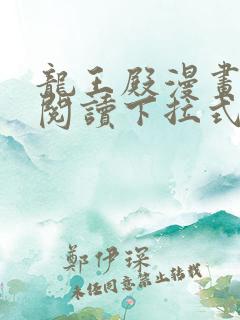 龍王殿漫畫
閱讀下拉式
鄭伊琛
未经同意禁止转载